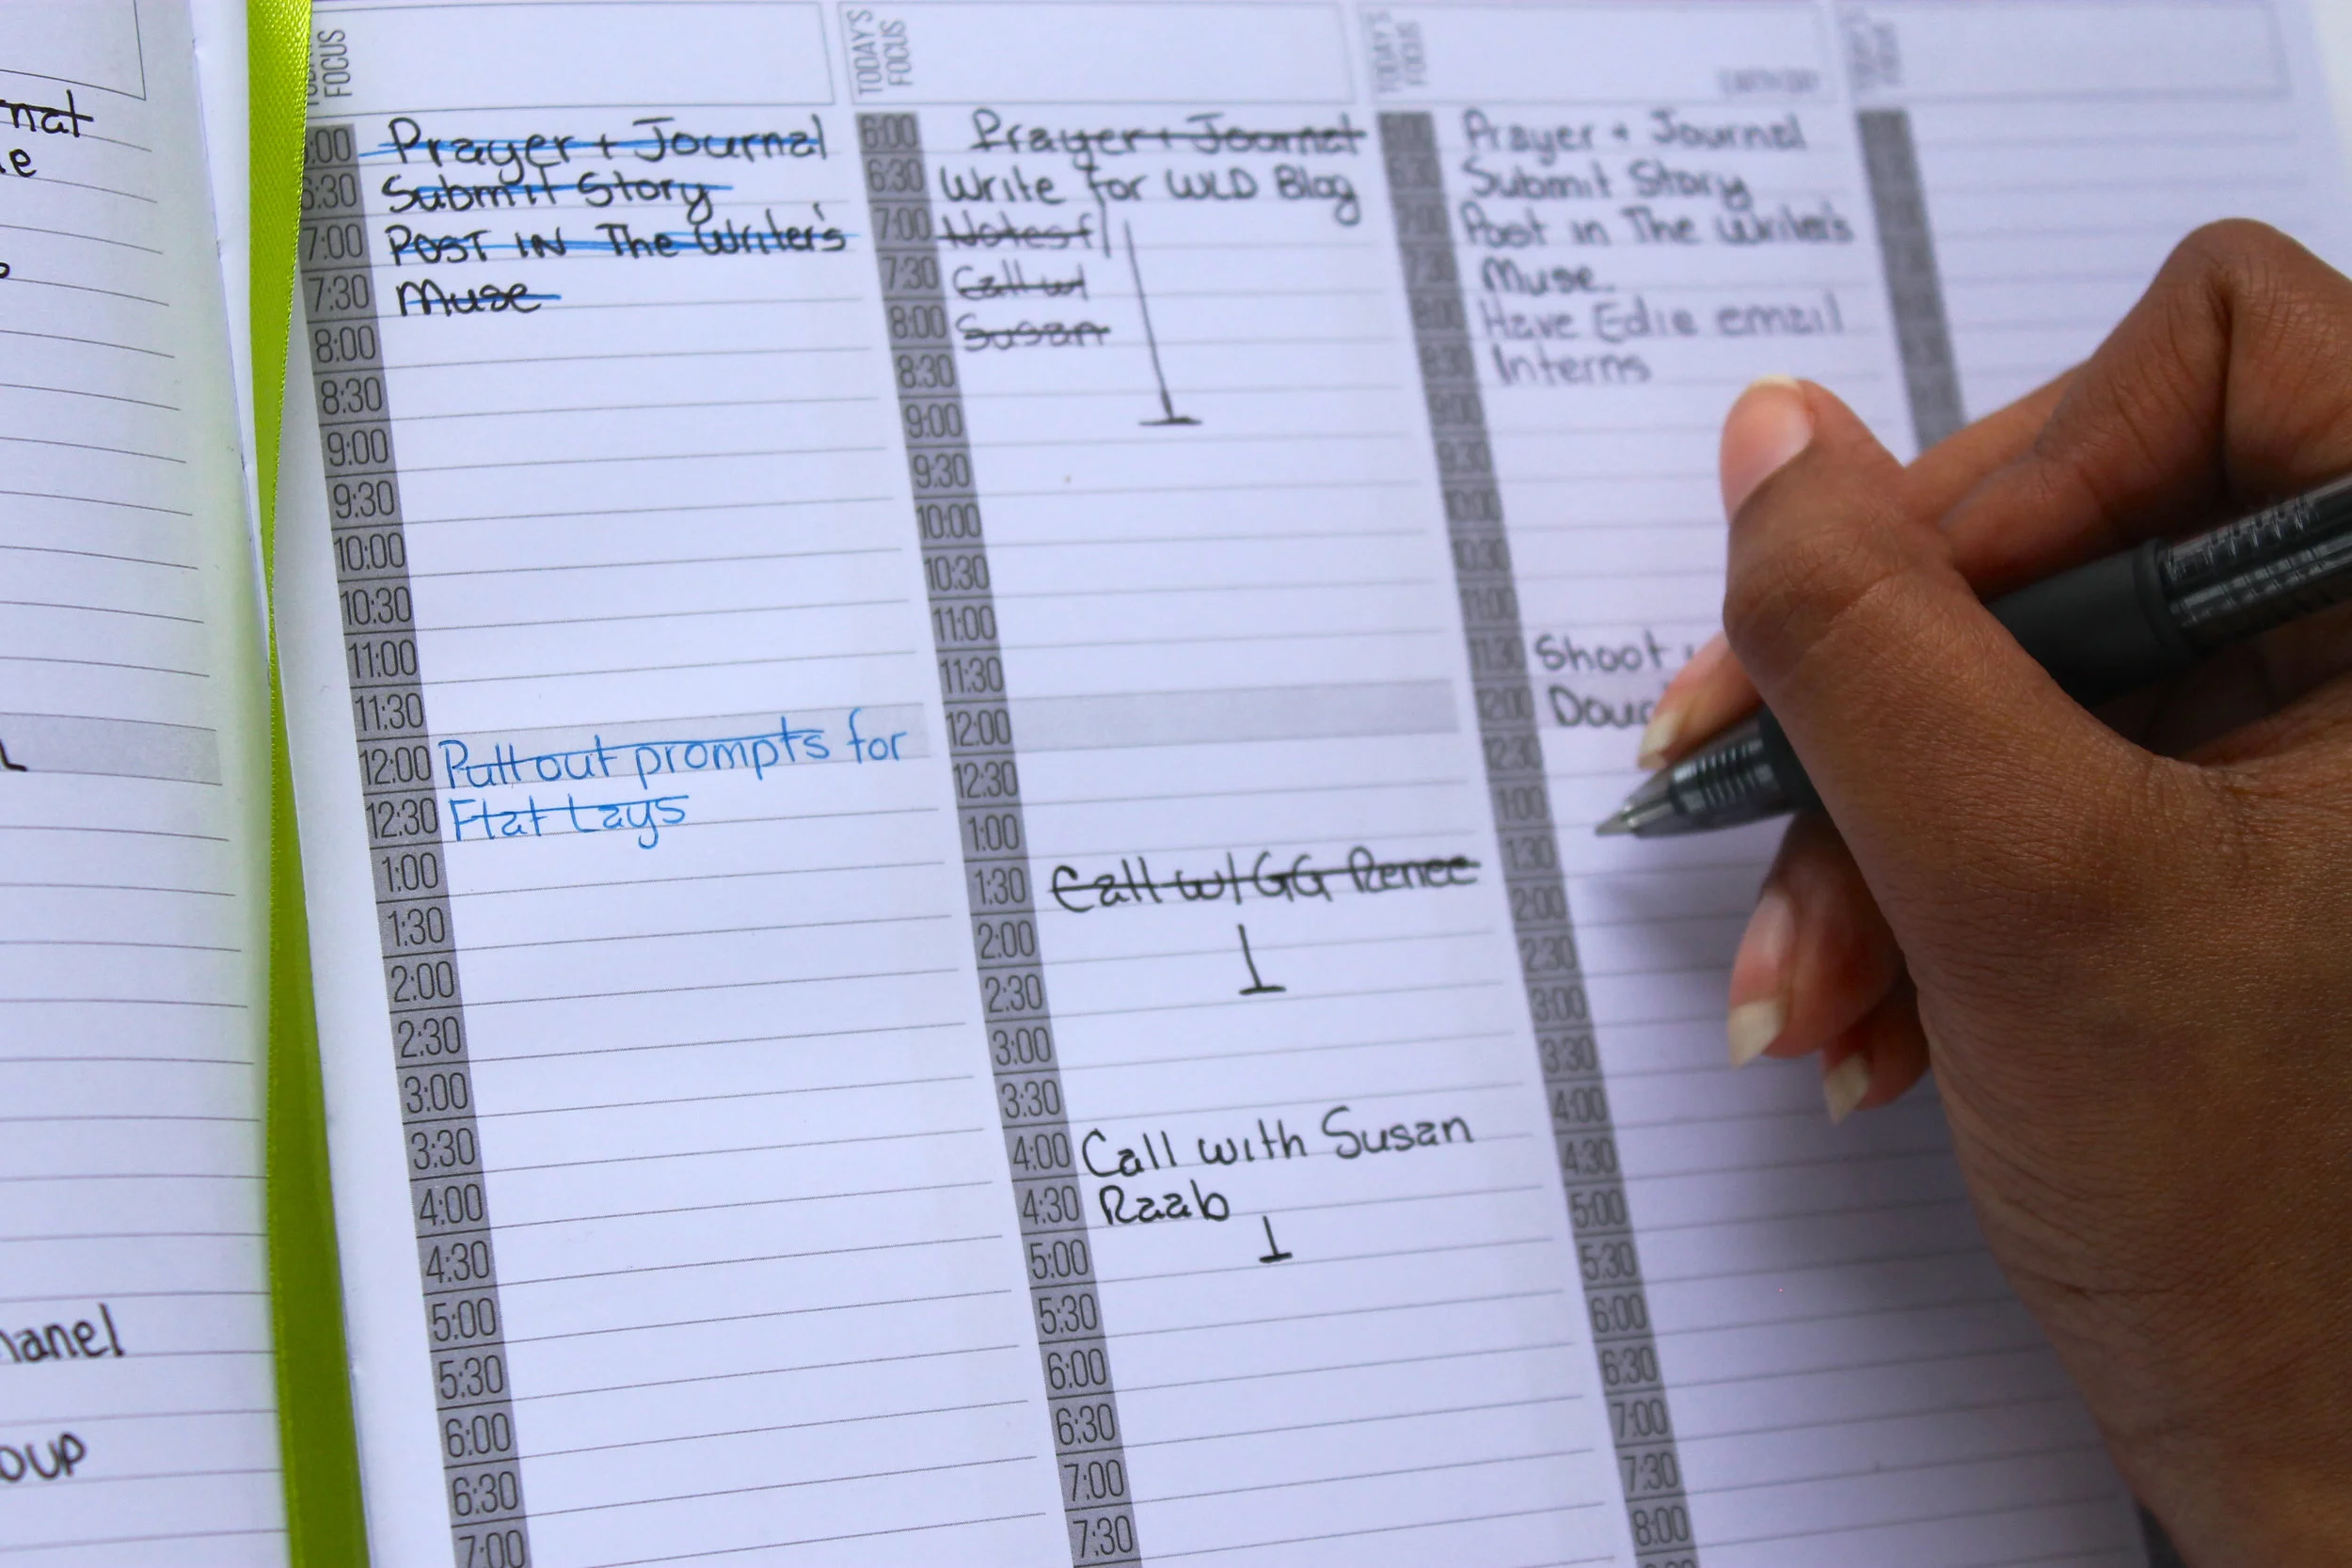 nat
e
TODAY'S
FOCUS
Prayer + Journal
6:30 Submit Story
7:00 POST IN The Writer's
7:30 Muse
8:00
8:30
9:00
9:30
10:00
10:30
11:00
11:30
12:00 Pull out prompts for
12:30 Flat Lays
1:00
1:30
2:00
2:30
3:00
3:30
4:00
4:30
5:00
5:30
6:00
6:30
7:00
TODAY'S
FOCUS
6:00 Prayer + Journal
6:30 Write for WLD Blog
7:00
7:30 Call w/
8:00 Susan
8:30
9:00
9:30
10:00
10:30
11:00
11:30
12:00
12:30
1:00
1:30 Call w/ GG Renee
2:00
2:30
3:00
3:30
4:00 Call with Susan
4:30 Raab
5:00
5:30
6:00
6:30
7:00
7:30
TODAY'S
FOCUS
Prayer + Journal
Submit Story
7:00 Post in The Writer's
7:30 Muse
8:00 Have Edie email
8:30 Interns
9:00
9:30
10:00
10:30
11:00
11:30 Shoot
12:00
12:30
1:00
1:30
2:00
2:30
3:00
3:30
4:00
4:30
5:00
5:30
6:00
6:30
7:00
7:30
8:00
hanel
oup